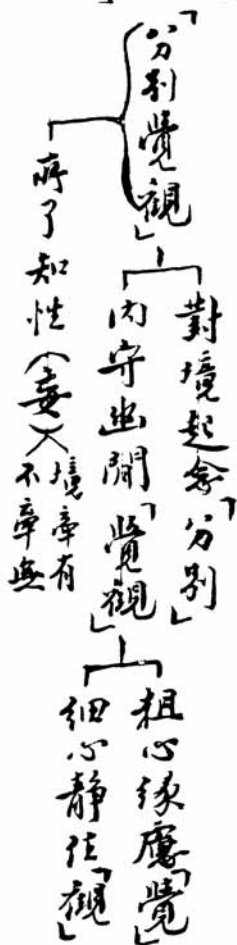 「分別覺觀」
對境起念「分別」
內守幽閒「覺觀」
粗心緣慮「覺」
細心靜住「觀」
所了知性（妄）
境牽有
不牽無